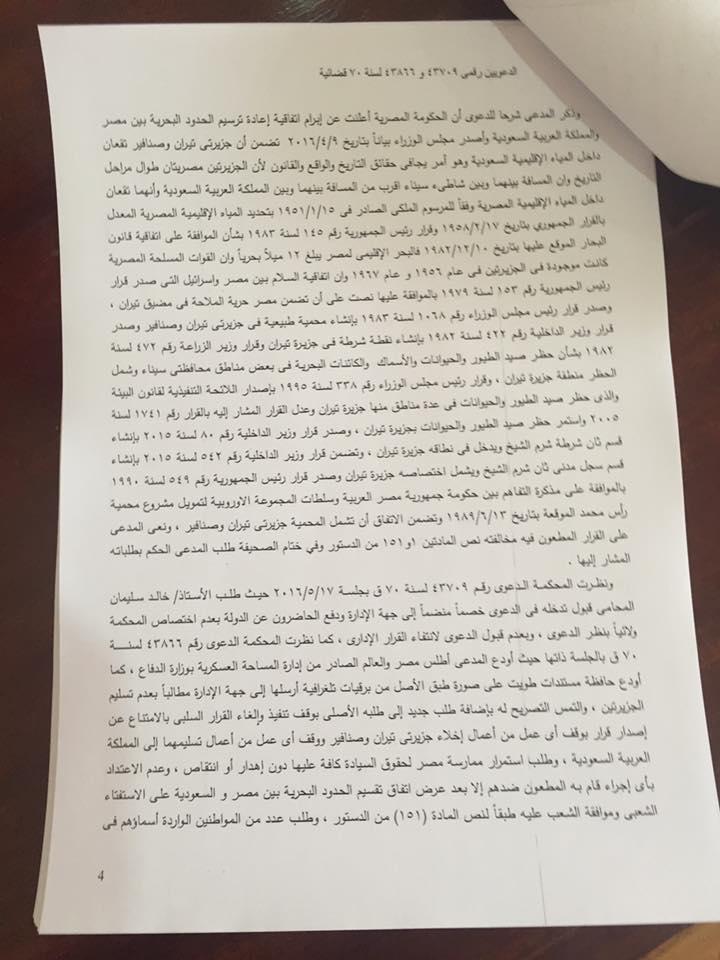 الدعويين رقمى ٤٣٧٠٩ و ٤٣٨٦٦ لسنة ٧٠ قضائية
وذكر المدعى شرحا للدعوى أن الحكومة المصرية أعلنت عن إبرام اتفاقية إعادة ترسيم الحدود البحرية بين مصر
والمملكة العربية السعودية وأصدر مجلس الوزراء بياناً بتاريخ ٢٠١٦/٤/٩ تضمن أن جزيرتى تيران وصنافير تقعان
داخل المياه الإقليمية السعودية وهو أمر يجافى حقائق التاريخ والواقع والقانون لأن الجزيرتين مصريتان طوال مراحل
التاريخ وان المسافة بينهما وبين شاطىء سيناء اقرب من المسافة بينهما وبين المملكة العربية السعودية وأنهما تقعان
داخل المياه الإقليمية المصرية وفقاً للمرسوم الملكى الصادر فى ١٩٥١/١/١٥ بتحديد المياه الإقليمية المصرية المعدل
بالقرار الجمهوري بتاريخ ١٩٥٨/٢/١٧ وقرار رئيس الجمهورية رقم ١٤٥ لسنة ١٩٨٣ بشأن الموافقة على اتفاقية قانون
البحار الموقع عليها بتاريخ ١٩٨٢/١٢/١٠ فالبحر الإقليمى لمصر يبلغ ١٢ ميلاً بحرياً وان القوات المسلحة المصرية
كانت موجودة فى الجزيرتين فى عام ١٩٥٦ و عام ١٩٦٧ وان اتفاقية السلام بين مصر واسرائيل التى صدر قرار
رئيس الجمهورية رقم ١٥٣ لسنة ١٩٧٩ بالموافقة عليها نصت على أن تضمن مصر حرية الملاحة فى مضيق تيران ،
وصدر قرار رئيس مجلس الوزراء رقم ١٠٦٨ لسنة ١٩٨٣ بإنشاء محمية طبيعية فى جزيرتى تيران وصنافير وصدر
قرار وزير الداخلية رقم ٤٢٢ لسنة ١٩٨٢ بإنشاء نقطة شرطة فى جزيرة تيران وقرار وزير الزراعة رقم ٤٧٢ لسنة
١٩٨٢ بشأن حظر صيد الطيور والحيوانات والأسماك والكائنات البحرية فى بعض مناطق محافظتى سيناء وشمل
الحظر منطقة جزيرة تيران ، وقرار رئيس مجلس الوزراء رقم ٣٣٨ لسنة ١٩٩٥ بإصدار اللائحة التنفيذية لقانون البيئة
والذى حظر صيد الطيور والحيوانات فى عدة مناطق منها جزيرة تيران وعدل القرار المشار إليه بالقرار رقم ١٧٤١ لسنة
٢٠٠٥ واستمر حظر صيد الطيور والحيوانات بجزيرة تيران ، وصدر قرار وزير الداخلية رقم ٨٠ لسنة ٢٠١٥ بإنشاء
قسم ثان شرطة شرم الشيخ ويدخل فى نطاقه جزيرة تيران ، وتضمن قرار وزير الداخلية رقم ٥٤٢ لسنة ٢٠١٥ بإنشاء
قسم سجل مدنى ثان شرم الشيخ ويشمل اختصاصه جزيرة تيران وصدر قرار رئيس الجمهورية رقم ٥٤٩ لسنة ١٩٩٠
بالموافقة على مذكرة التفاهم بين حكومة جمهورية مصر العربية وسلطات المجموعة الاوروبية لتمويل مشروع محمية
رأس محمد الموقعة بتاريخ ١٩٨٩/٦/١٣ وتضمن الاتفاق أن تشمل المحمية جزيرتى تيران وصنافير ، ونعى المدعى
على القرار المطعون فيه مخالفته نص المادتين ١و١٥١ من الدستور وفي ختام الصحيفة طلب المدعى الحكم بطلباته
المشار إليها .
ونظرت المحكمة الدعوى رقم ٤٣٧٠٩ لسنة ٧٠ ق بجلسة ٢٠١٦/٥/١٧ حيث طلب الأستاذ/ خالد سليمان
المحامى قبول تدخله فى الدعوى خصماً منضماً إلى جهة الإدارة ودفع الحاضرون عن الدولة بعدم اختصاص المحكمة
ولائياً بنظر الدعوى ، وبعدم قبول الدعوى لانتفاء القرار الإدارى ، كما نظرت المحكمة الدعوى رقم ٤٣٨٦٦ لسنة
٧٠ ق بالجلسة ذاتها حيث أودع المدعى أطلس مصر والعالم الصادر من إدارة المساحة العسكرية بوزارة الدفاع ، كما
أودع حافظة مستندات طويت على صورة طبق الأصل من برقيات تلغرافية أرسلها إلى جهة الإدارة مطالباً بعدم تسليم
الجزيرتين ، والتمس التصريح له بإضافة طلب جديد إلى طلبه الأصلى بوقف تنفيذ وإلغاء القرار السلبى بالامتناع عن
إصدار قرار بوقف أى عمل من أعمال إخلاء جزيرتى تيران وصنافير ووقف أى عمل من أعمال تسليمهما إلى المملكة
العربية السعودية ، وطلب استمرار ممارسة مصر لحقوق السيادة كافة عليها دون إهدار أو انتقاص ، وعدم الاعتداد
بأى إجراء قام به المطعون ضدهم إلا بعد عرض اتفاق تقسيم الحدود البحرية بين مصر و السعودية على الاستفتاء
الشعبى وموافقة الشعب عليه طبقاً لنص المادة (١٥١) من الدستور ، وطلب عدد من المواطنين الواردة أسماؤهم فى
4